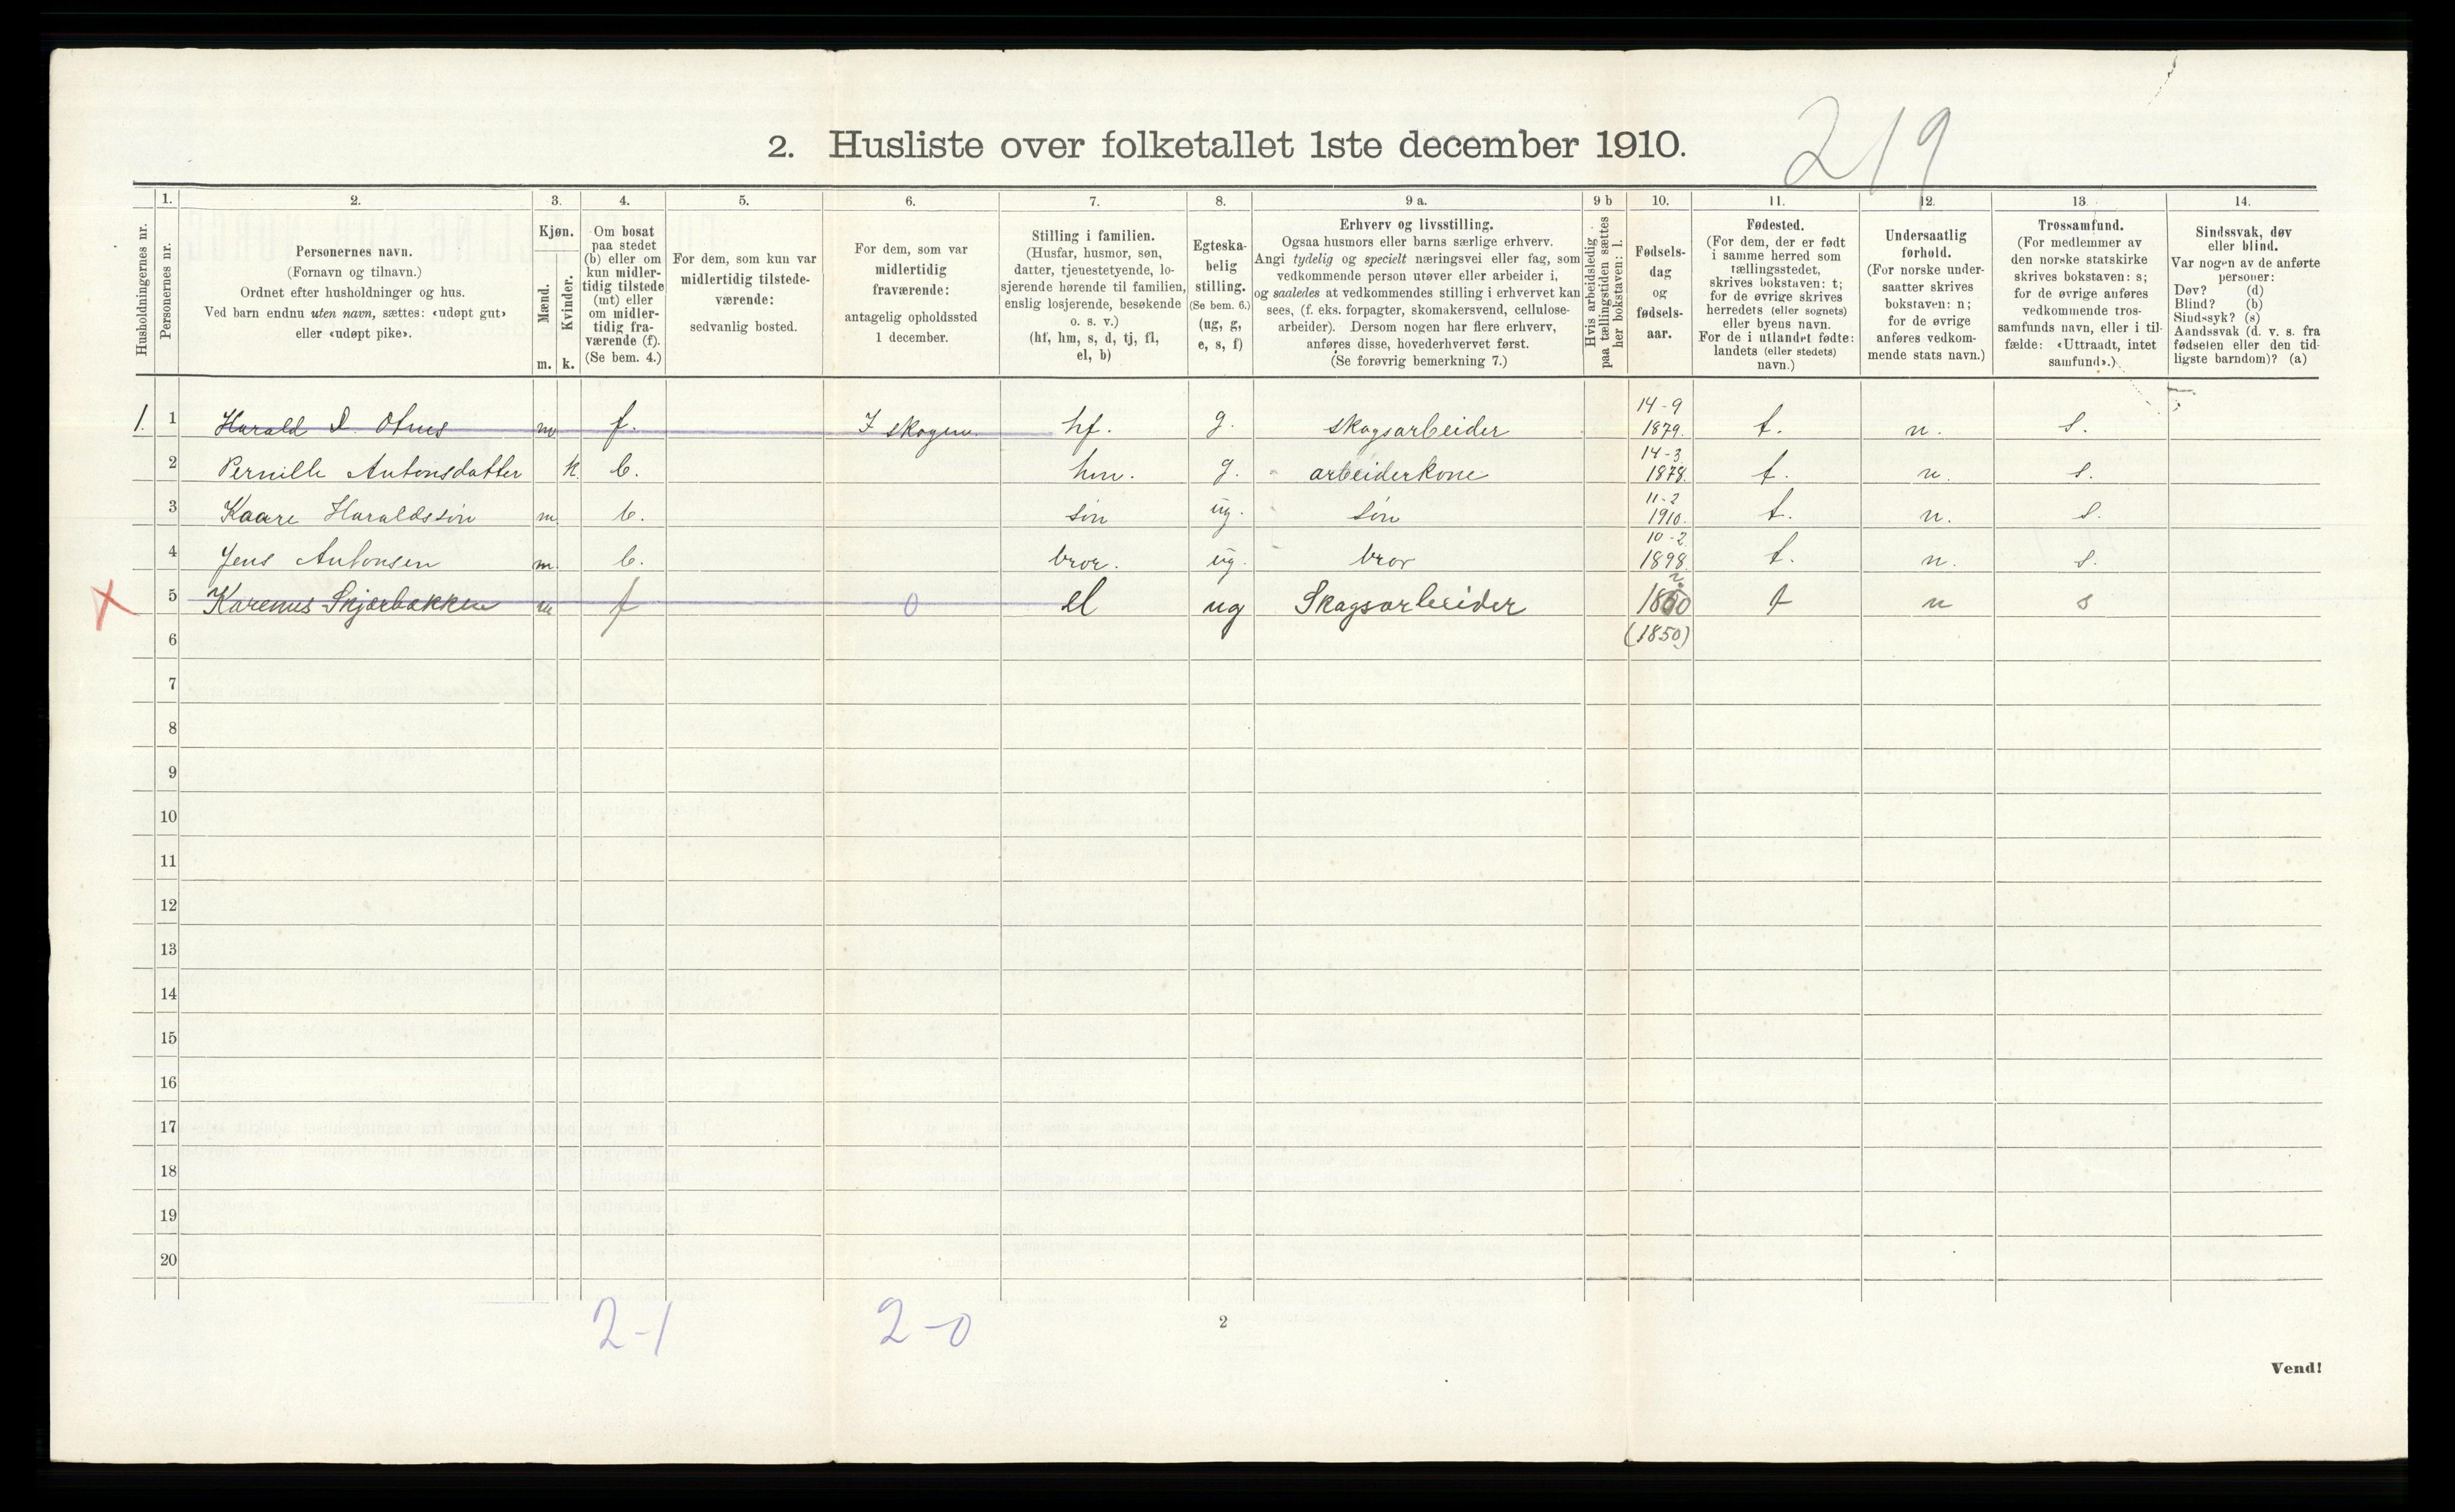 219
2. Husliste over folketallet 1ste december 1910.
Husholdningernes nr.
1.
Personernes nr.
2.
Personernes navn.
(Fornavn og tilnavn.)
Ordnet efter husholdninger og hus.
Ved barn endnu uten navn, sættes: «udøpt gut»
eller «udøpt pike».
3.
Kjøn.
Mænd.
Kvinder.
m. k.
4.
Om bosat
paa stedet
(b) eller om
kun midler-
tidig tilstede
(mt) eller
om midler-
tidig fra-
værende (f).
(Se bem. 4.)
5.
For dem, som kun var
midlertidig tilstede-
værende:
sedvanlig bosted.
6.
For dem, som var
midlertidig
fraværende:
antagelig opholdssted
1 december.
7.
Stilling i familien.
(Husfar, husmor, søn,
datter, tjenestetyende, lo-
sjerende hørende til familien,
enslig losjerende, besøkende
o. s. v.)
(hf, hm, s, d, tj, fl,
el, b)
8.
Egteska-
belig
stilling.
(Se bem. 6.)
(ug, g,
e, s, f)
9 a.
Erhverv og livsstilling.
Ogsaa husmors eller barns særlige erhverv.
Angi tydelig og specielt næringsvei eller fag, som
vedkommende person utøver eller arbeider i,
og saaledes at vedkommendes stilling i erhvervet kan
sees, (f. eks. forpagter, skomakersvend, cellulose-
arbeider). Dersom nogen har flere erhverv,
anføres disse, hovederhvervet først.
(Se forøvrig bemerkning 7.)
9 b
Hvis arbeidsledig
paa tællingstiden sættes
her bokstaven: l.
10.
Fødsels-
dag
og
fødsels-
aar.
11.
Fødested.
(For dem, der er født
i samme herred som
tællingsstedet,
skrives bokstaven: t;
for de øvrige skrives
herredets (eller sognets)
eller byens navn.
For de i utlandet fødte:
landets (eller stedets)
navn.)
12.
Undersaatlig
forhold.
(For norske under-
saatter skrives
bokstaven: n;
for de øvrige
anføres vedkom-
mende stats navn.)
13.
Trossamfund.
(For medlemmer av
den norske statskirke
skrives bokstaven: s;
for de øvrige anføres
vedkommende tros-
samfunds navn, eller i til-
fælde: «Uttraadt, intet
samfund».)
14.
Sindssvak, døv
eller blind.
Var nogen av de anførte
personer:
Døv? (d)
Blind? (b)
Sindssyk? (s)
Aandssvak (d. v. s. fra
fødselen eller den tid-
ligste barndom)? (a)
1. 1 Harald D. Otnes m f. I skogen hf. g. skogsarbeider 14-9 1879. t. n. s.
2 Pernille Antonsdatter k b. hm. g. arbeiderkone 14-3 1878. t. n. s.
3 Kaare Haraldssøn m b. søn ug. søn 11-2 1910. t. n. s.
4 Jens Antonsen m. b. bror. ug. bror 10-2 1898. t. n. s.
X 5 Karenus Skjærbakken m f 0 el ug Skogsarbeider 1860 ? t n s
6 (1850)
7
8
9
10
11
12
13
14
15
16
17
18
19
20
2-1 2-0
2
Vend!